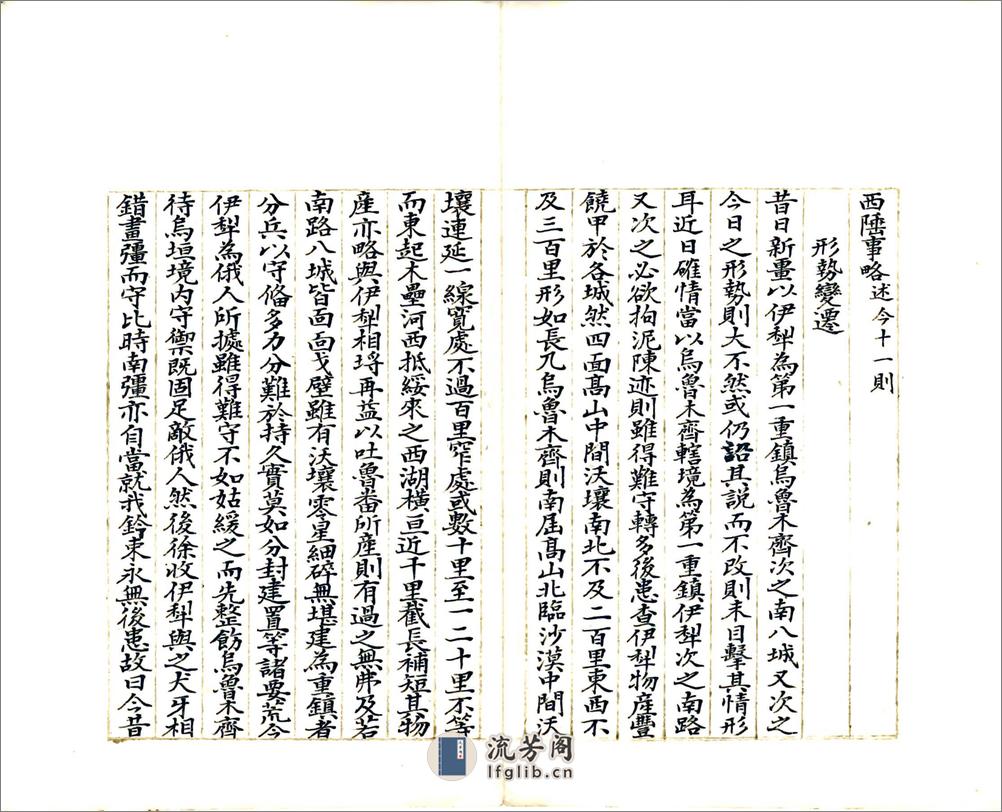 西陲事略述今十一則
形勢變遷
昔日新畺以伊犂為第一重鎮烏魯木齊次之南八城又次之
今日之形勢則大不然或仍諂其說而不改則未目擊其情形
耳近日確情當以烏魯木齊轄境為第一重鎮伊犂次之南路
又次之必欲拘泥陳迹則雖得難守轉多後患查伊犂物產豐
饒甲於各城然四面髙山中間沃壤南北不及二百里東西不
及三百里形如長几烏魯木齊則南屆髙山北臨沙漠中間沃
壤連延一線寬處不過百里窄處或數十里至一二十里不等
而東起木壘河西抵綏來之西湖橫亘近千里截長補短其物
產亦略與伊犂相埒再益以吐魯畨所產則有過之無弗及若
南路八城皆面面戈壁雖有沃壤零星細碎無堪建為重鎮者
分兵以守俻多力分難於持久實莫如分封建置等諸要荒今
伊犂為俄人所據雖得難守不如姑緩之而先整飭烏魯木齊
待烏垣境內守禦既固足敵俄人然後徐收伊犂與之犬牙相
錯畫疆而守比時南疆亦自當就我鈐束永無後患故曰今昔
流芳阁
lfglib.cn